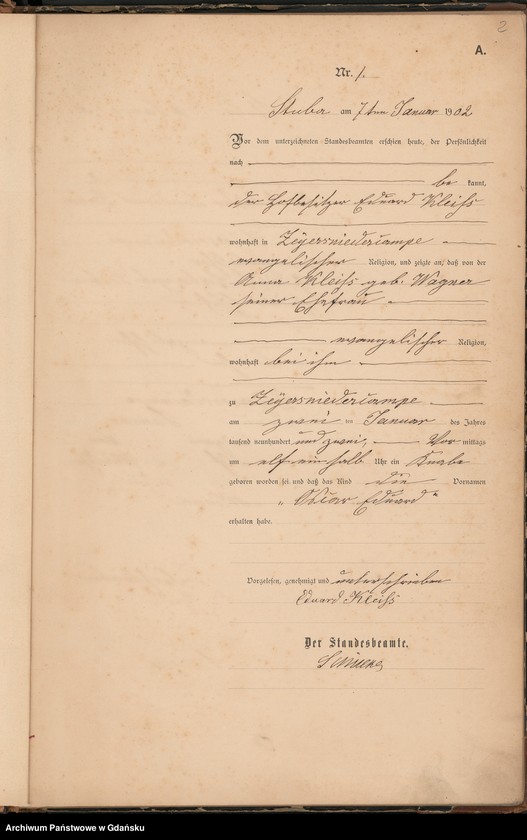 2
A.
Nr. 1.
Stuba am 7ten Januar 1902
Vor dem unterzeichneten Standesbeamten erschien heute, der Persönlichkeit
nach
be kannt,
der Hofbesitzer Eduard Kleiss
wohnhaft in Zeyersniedercampe
evangelischer Religion, und zeigte an, daß von der
Anna Kleiss geb. Wagner
seiner Ehefrau
evangelischer Religion,
wohnhaft bei ihm
zu Zeyersniedercampe
am zwei ten Januar des Jahres
tausend neunhundert und zwei, Vor mittags
um elf ein halb Uhr ein Knabe
geboren worden sei und daß das Kind die Vornamen
„Oscar Eduard“
erhalten habe.
Vorgelesen, genehmigt und unterschrieben
Eduard Kleiss
Der Standesbeamte.
Archiwum Państwowe w Gdańsku